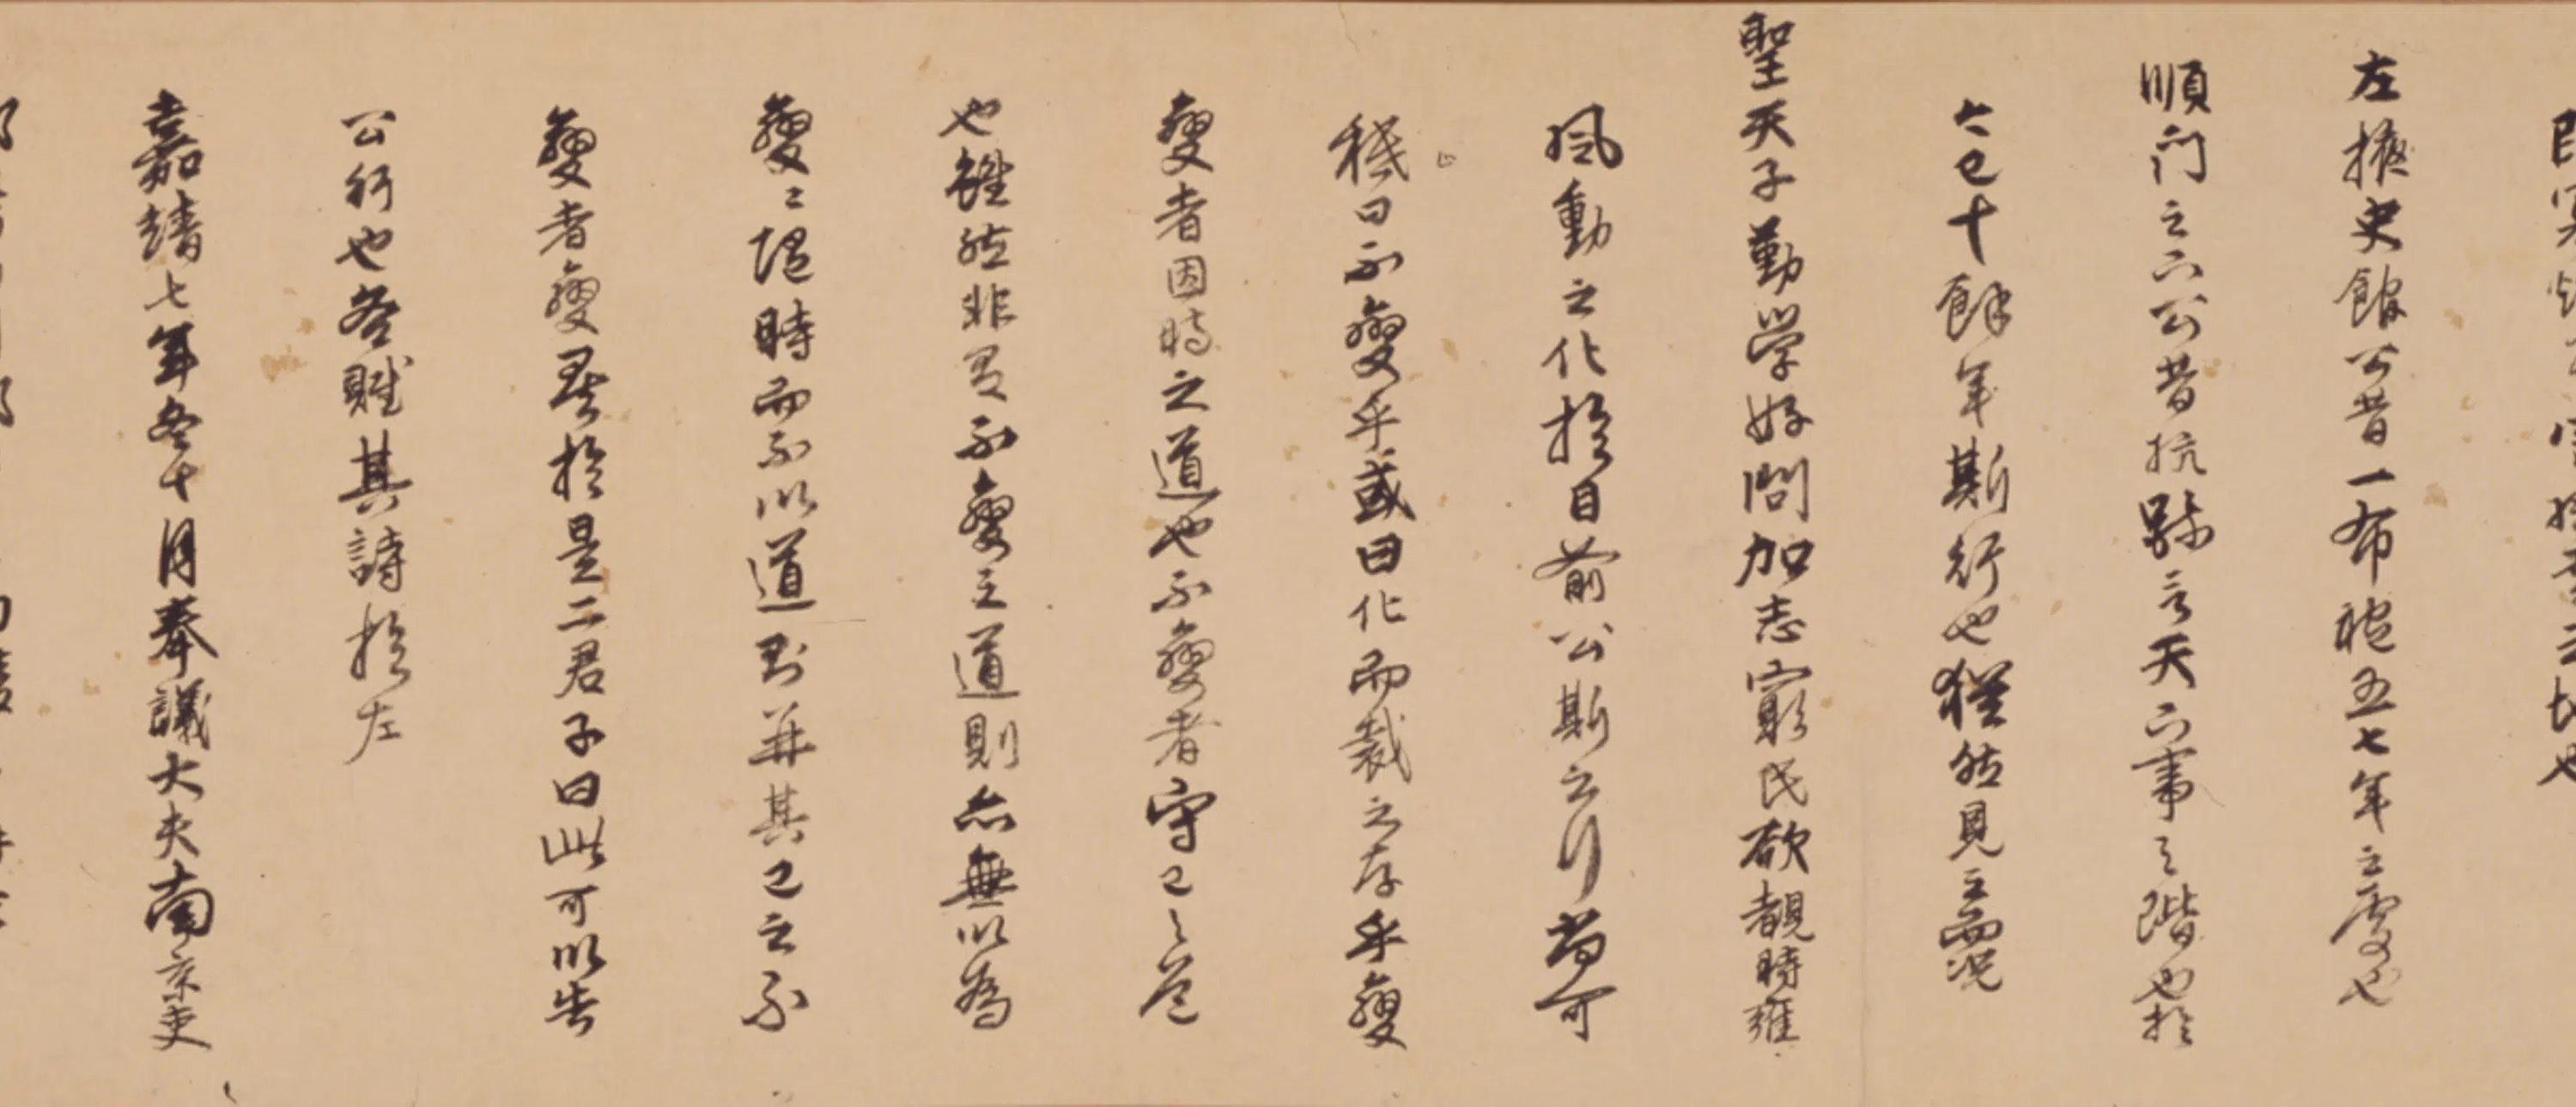 左掖史館公昔一布袍五七年之處也
順門之六公昔抗疏言天六事之階也於
今七十餘年斯行也猶然見之而況
聖天子勤學好問加志窮民欲覩時雍
風動之化於目前公斯之行尚可
曰不變乎或曰化而裁之存乎變
變者因時之道也不變者守己之
也雖然非不變之道則亦無以為
變變隨時而不以道則并其己之不
變者變矣於是二君子曰此可以告
公行也各賦其詩於左
嘉靖七年冬十月奉議大夫南京吏